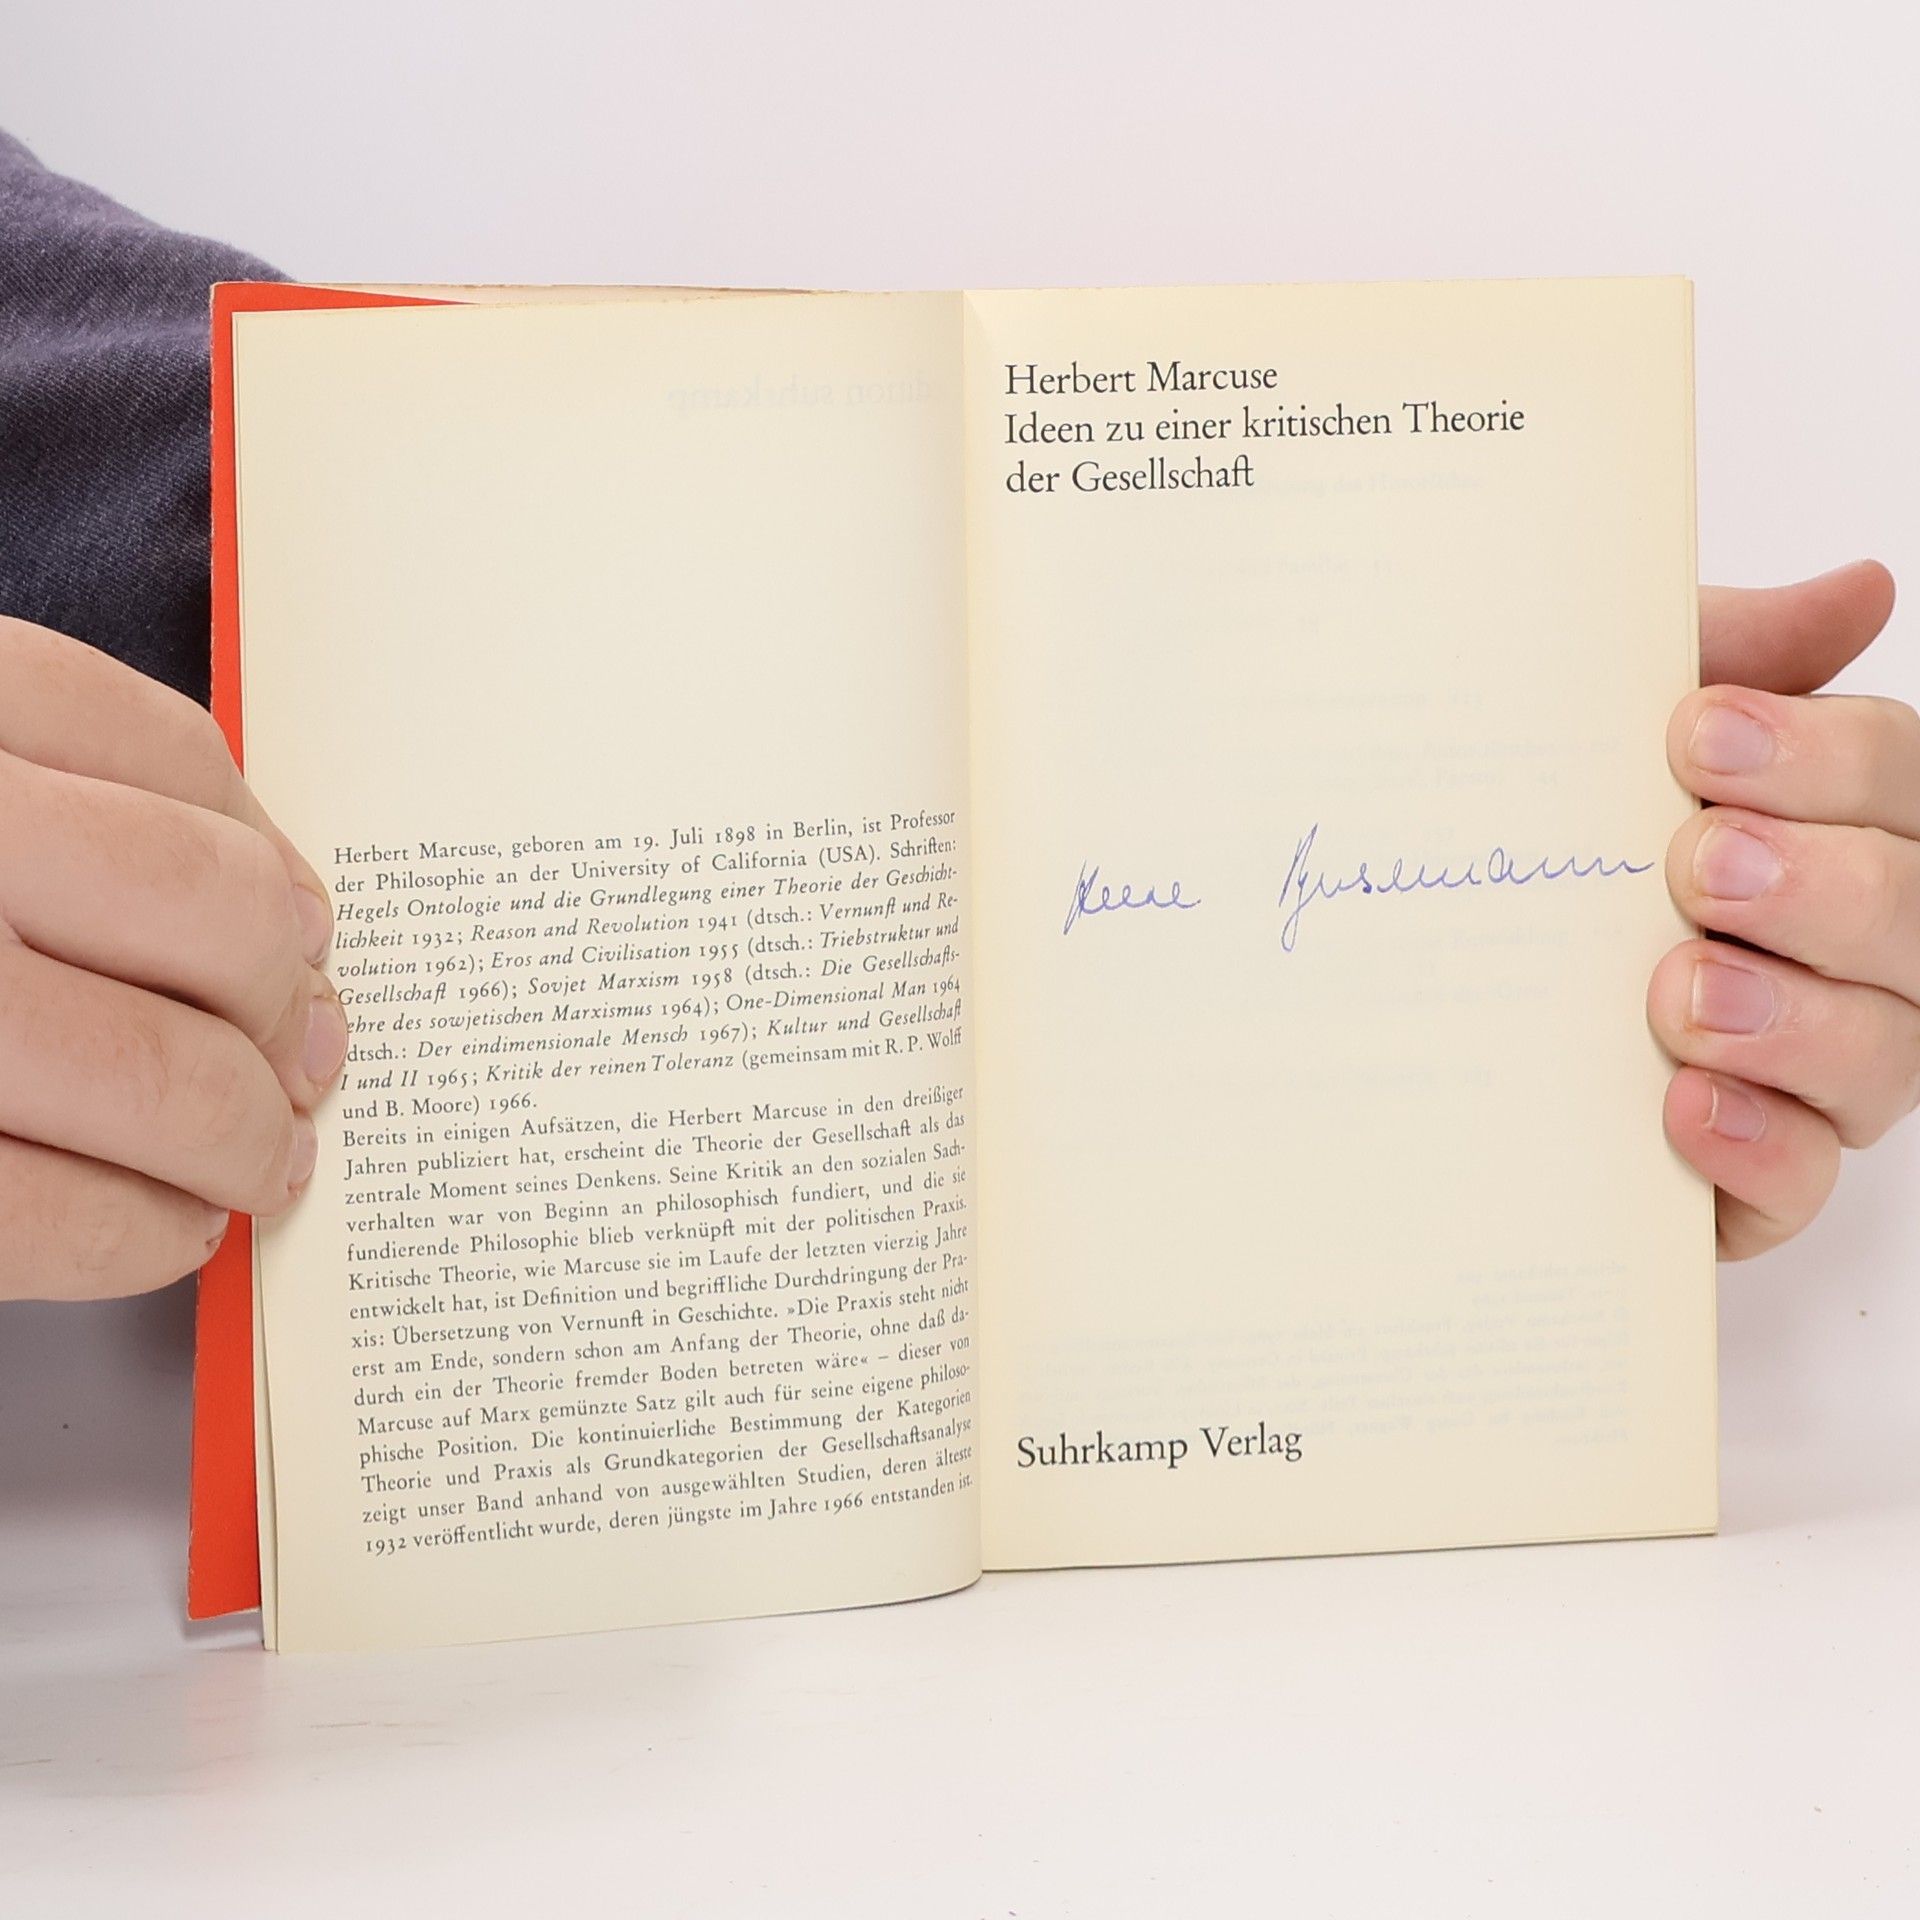 Herbert Marcuse, geboren am 19. Juli 1898 in Berlin, ist Professor
der Philosophie an der University of California (USA). Schriften:
Hegels Ontologie und die Grundlegung einer Theorie der Geschicht-
lichkeit 1932; Reason and Revolution 1941 (dtsch.: Vernunft und Re-
volution 1962); Eros and Civilisation 1955 (dtsch.: Triebstruktur und
Gesellschaft 1966); Sovjet Marxism 1958 (dtsch.: Die Gesellschafts-
lehre des sowjetischen Marxismus 1964); One-Dimensional Man 1964
(dtsch.: Der eindimensionale Mensch 1967); Kultur und Gesellschaft
I und II 1965; Kritik der reinen Toleranz (gemeinsam mit R. P. Wolff
und B. Moore) 1966.
Bereits in einigen Aufsätzen, die Herbert Marcuse in den dreißiger
Jahren publiziert hat, erscheint die Theorie der Gesellschaft als das
zentrale Moment seines Denkens. Seine Kritik an den sozialen Sach-
verhalten war von Beginn an philosophisch fundiert, und die sie
fundierende Philosophie blieb verknüpft mit der politischen Praxis.
Kritische Theorie, wie Marcuse sie im Laufe der letzten vierzig Jahre
entwickelt hat, ist Definition und begriffliche Durchdringung der Pra-
xis: Übersetzung von Vernunft in Geschichte. »Die Praxis steht nicht
erst am Ende, sondern schon am Anfang der Theorie, ohne daß da-
durch ein der Theorie fremder Boden betreten wäre« – dieser von
Marcuse auf Marx gemünzte Satz gilt auch für seine eigene philoso-
phische Position. Die kontinuierliche Bestimmung der Kategorien
Theorie und Praxis als Grundkategorien der Gesellschaftsanalyse
zeigt unser Band anhand von ausgewählten Studien, deren älteste
1932 veröffentlicht wurde, deren jüngste im Jahre 1966 entstanden ist.
Herbert Marcuse
Ideen zu einer kritischen Theorie
der Gesellschaft
Suhrkamp Verlag